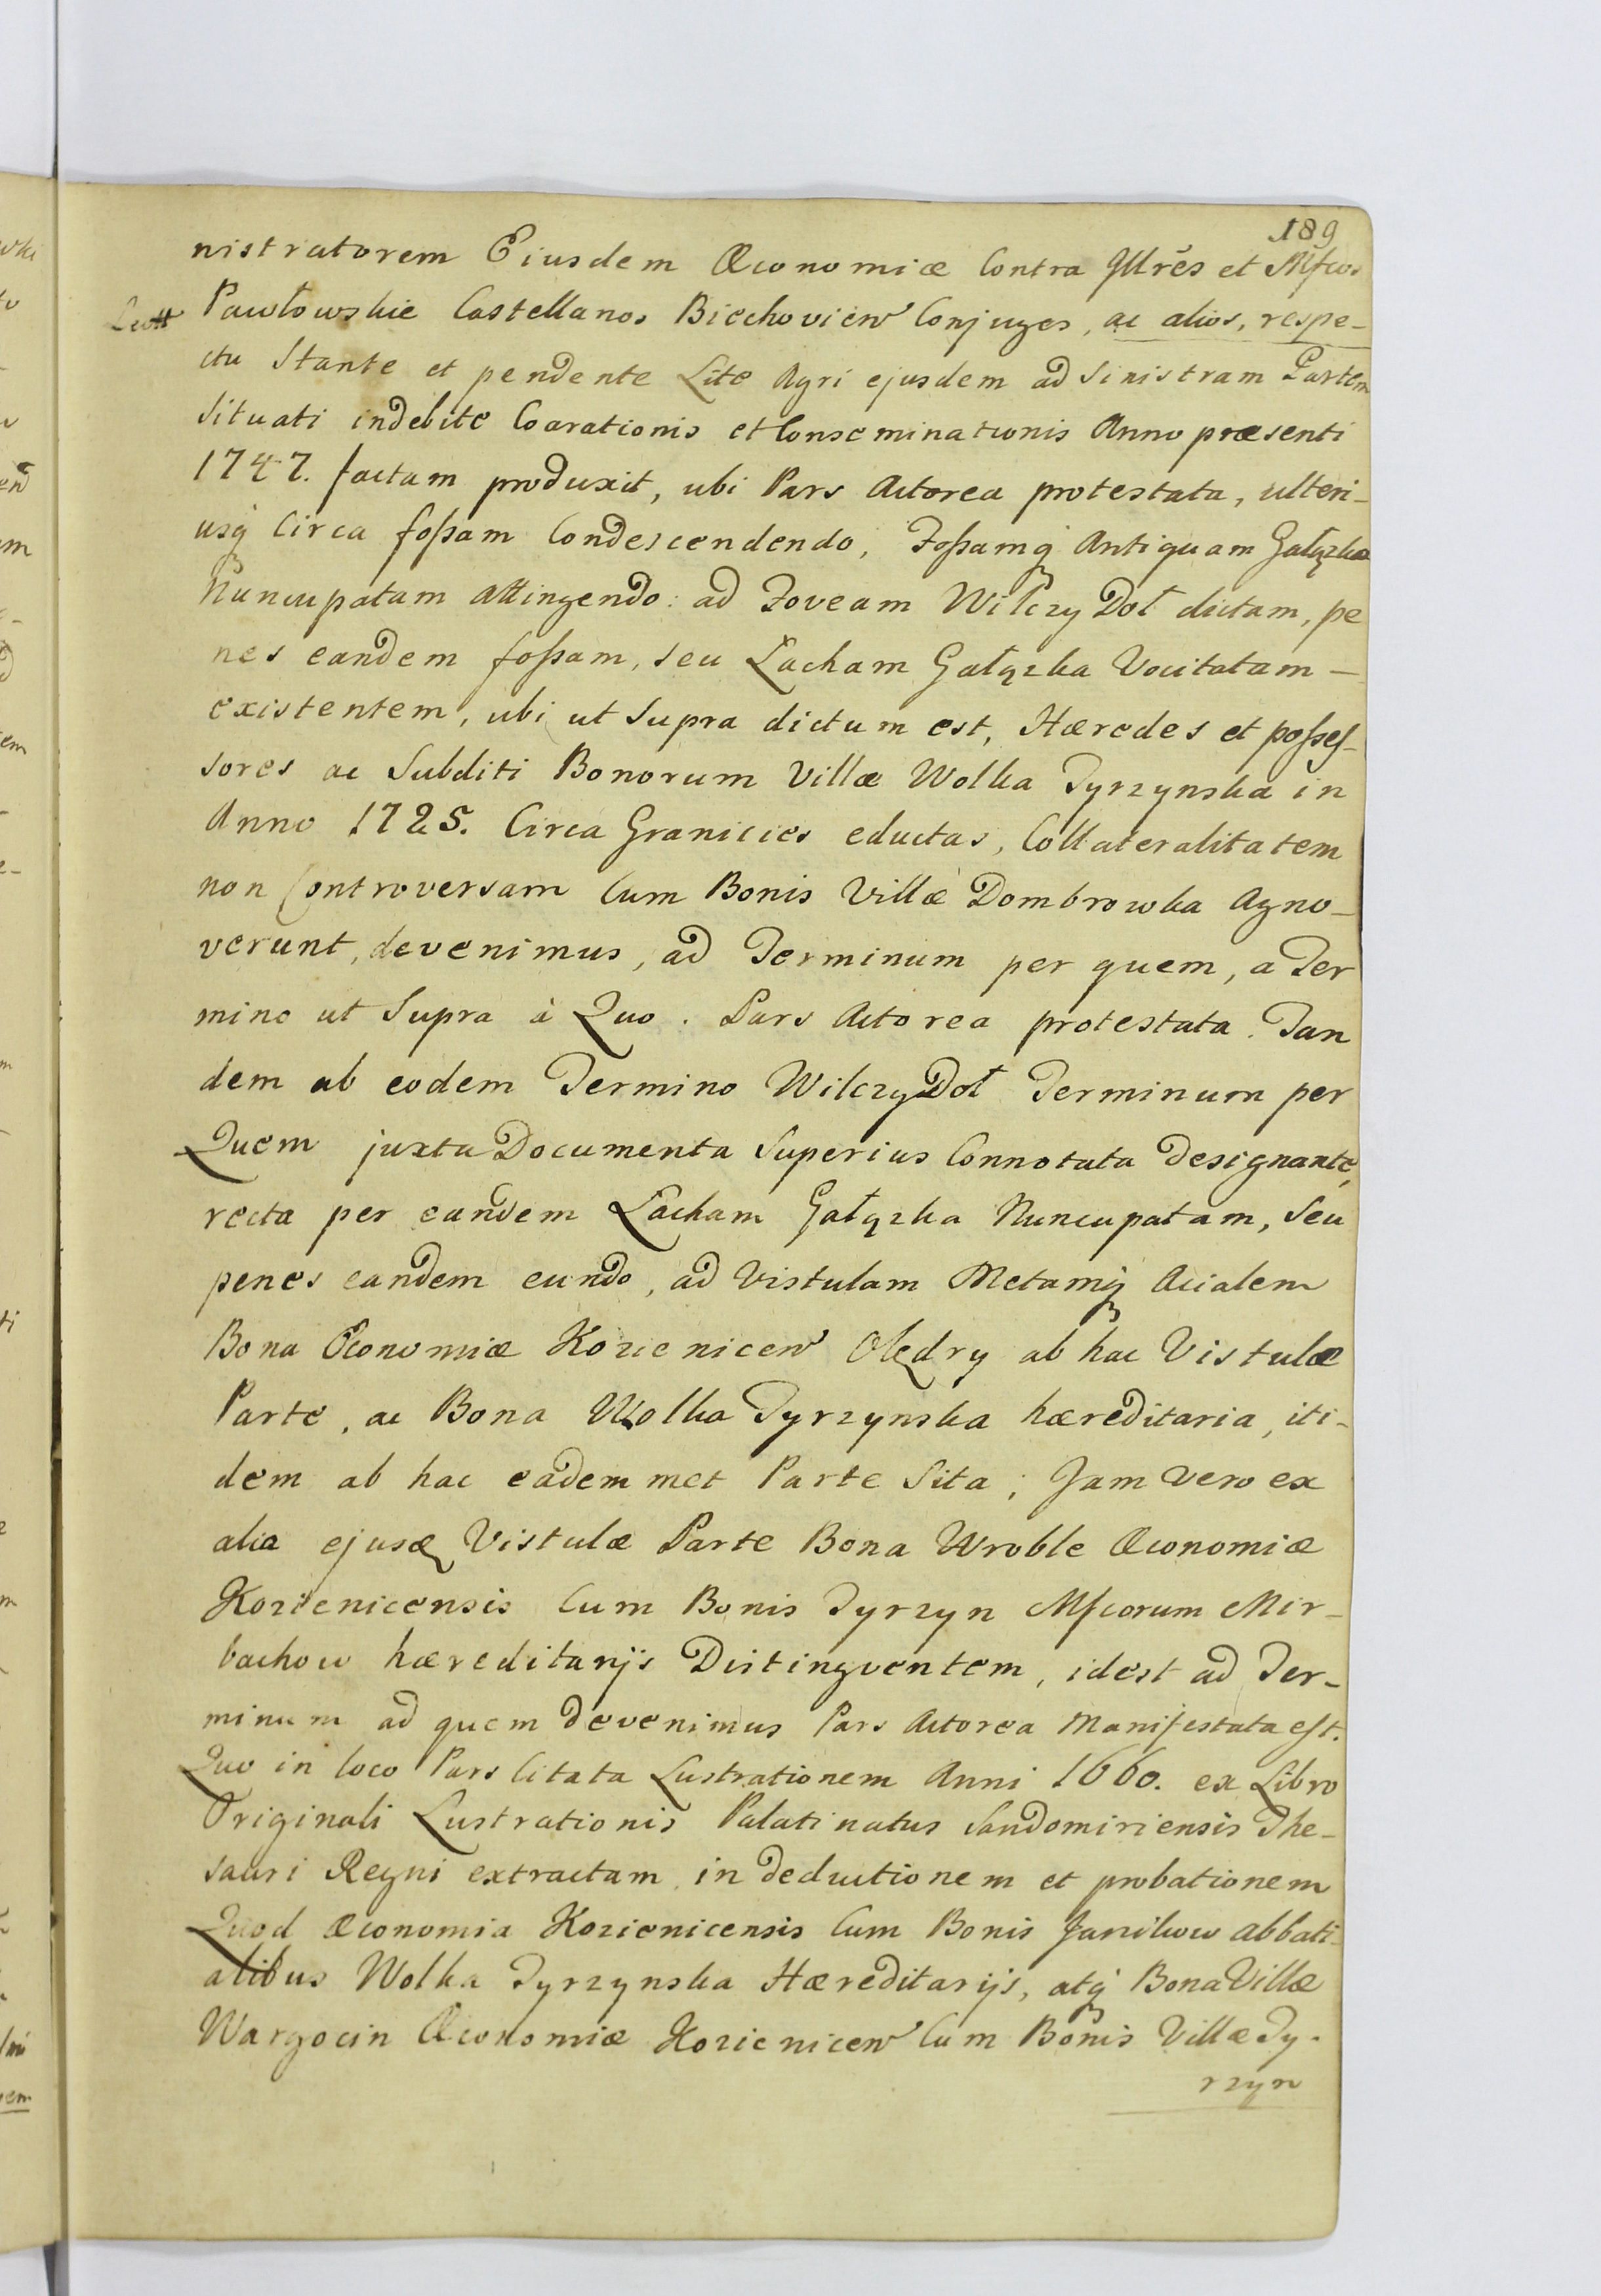 189
nistratorem Eiusdem Œconomiæ Contra Jllrẽs et Mfcos
Pawłowskie Castellanos Biechovien Conjuges, ac alios, respe-
ctu Stante et pendente Lite Agri ejusdem ad Sinistram Partem
Situati indebite Coarationis et Conseminationis Anno præsenti
1747. factam produxit, ubi Pars Actorea protestata, ulteri-
usq̃ Circa foſsam Condescendendo, Foſsamq̃ Antiquam Gałązka
Nuncupatam attingendo: ad Foveam Wilczy Doł dictam, pe
nes eandem foſsam, seu Łacham Gałązka Vocitatam —
existentem, ubi ut Supra dictum est, Hæredes et poſseſ-
sores ac Subditi Bonorum Villæ Wolka Tyrzynska in
Anno 1725. Circa Granicies eductas, Collateralitatem
non Controversam Cum Bonis Villæ Dombrowka Agno-
verunt, devenimus, ad Terminum per quem, a Ter
mino ut Supra à Quo. Pars Actorea protestata. Tan
dem ab eodem Termino Wilczy Doł Terminum per
Quem juxta Documenta Superius Connotata designante,
recta per eandem Łacham Gałązka Nuncupatam, Seu
penes eandem eundo, ad Vistulam Metamq̃ Acialem
Bona Œconomiæ Kozienicen Olędry ab hac Vistulæ
Parte, ac Bona Wolka Tyrzynska hæreditaria, iti-
dem ab hac eademmet Parte Sita; Jam vero ex
alia ejusdẽ Vistulæ Parte Bona Wroble Œconomiæ
Kozienicensis Cum Bonis Tyrzyn Mfcorum Mir-
bachow hæreditarijs Distingventem, idest ad Ter-
minum ad quem devenimus Pars Actorea Manifestata eſt.
Quo in loco Pars Citata Lustrationem Anni 1660. ex Libro
Originali Lustrationis Palatinatus Sandomiriensis The-
sauri Regni extractam in deductionem et probationem
Quod Œconomia Kozienicensis Cum Bonis Janikow abbati-
alibus Wolka Tyrzynska Hæreditarijs, atq̃ Bona Villæ
Wargocin Œconomiæ Kozienicen Cum Bonis Villæ Ty-
rzyn